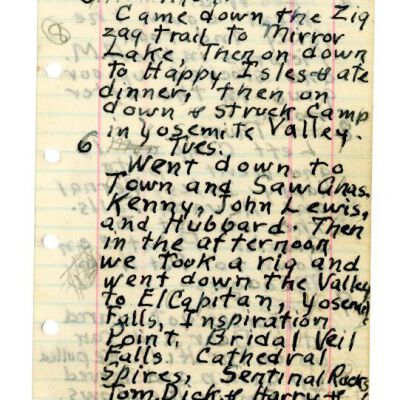 Came down the Zig
zag trail to Mirror
Lake, Then on down
to Happy Isles & ate
dinner, then on
down & struck Camp
in Yosemite Valley.
6 Tues.
Went down to
Town and Saw Chas.
Kenny, John Lewis,
and Hubbard Then
in the afternoon
we took a rig and
went down the Valley
to ElCapitan, Yosemite
Falls, Inspiration
Point, Bridal Veil
Falls Cathedral
Spires, Sentinal Rocks
Tom, Dick & Harry &